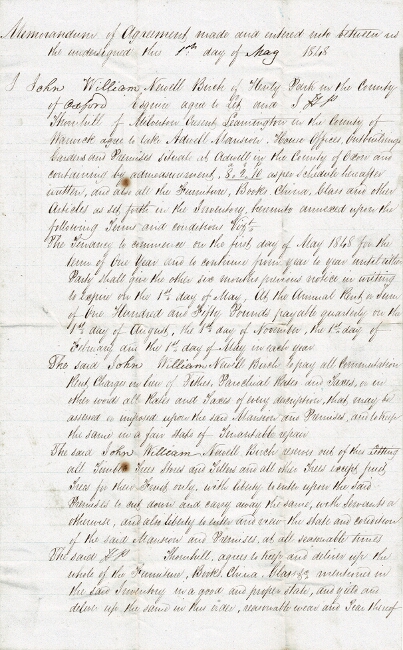 Memorandum of Agreement made and entered into between us
the undersigned this 1st day of May 1848
I John William Newell Birch of Henly Park in the County
of Oxford Esquire agree to Let, and I
Thornhill of Milverton Crescent Leamington in the County of
Warwick agree to take Adwell Mansion, House Offices, Outbuildings
Gardens and Premises situate at Adwell in the County of Oxon and
containing by admeasurement, 8. 2. 10 as per schedule hereafter
written, and also all the Furniture, Books, China, Glass and other
Articles as set forth in the Inventory, hereunto annexed upon the
following Terms and conditions Vizt
The Tenancy to commence on the first day of May 1848 for the
term of One Year and to continue from year to year until either
Party shall give the other six months previous notice in writing
to Expire on the 1st day of May, At the Annual Rent or Sum
of One Hundred and Fifty Pounds payable quarterly on the
1st day of August, the 1st day of November, the 1st day of
February and the 1st day of May in each year
The said John William Newell Birch to pay all Commutation
Rent Charge in lieu of Tithes, Parochial Rates and Taxes, or in
other words all Rates and Taxes of every description, that may be
assessed or imposed upon the said Mansion and Premises, and to keep
the same in a fair state of Tenantable repair
The said John William Newell Birch reserves out of this Letting
all Timber Trees Stores and Tellers and all other Trees except fruit
Trees for their Fruit only, with liberty to enter upon the said
Premises to cut down and carry away the same, with Servants or
otherwise, and also liberty to enter and view the state and condition
of the said Mansion and Premises, at all seasonable times
The said Thornhill, agrees to keep and deliver up the
whole of the Furniture, Books, China, Glass &c mentioned in
the said Inventory in a good and proper state, and quit and
deliver up the same in this order, reasonable wear and Tear thereof